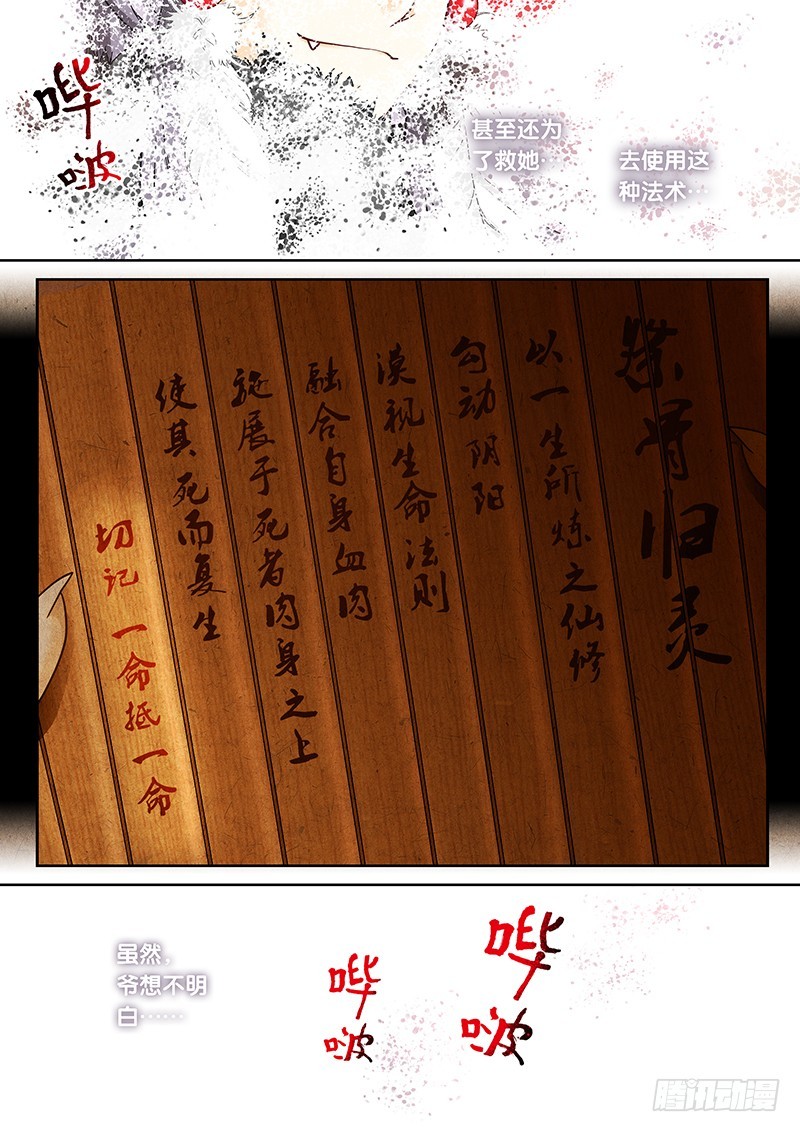 哔
啵
甚至还为
了救她…
去使用这
种法术…
祭骨归灵
以一生所炼之仙修
勾动阴阳
漠视生命法则
融合自身血肉
施展于死者肉身之上
使其死而复生
切记 一命抵一命
虽然，
爷想不明
白……
哔
啵
哔
啵
腾讯动漫